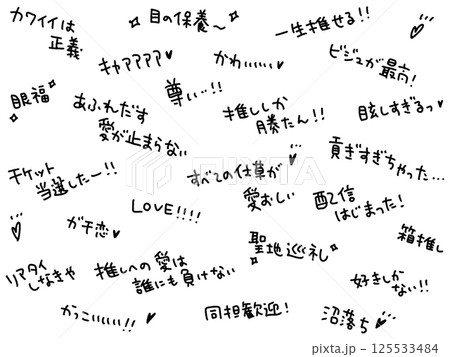 カワイイは
正義
目の保養〜
一生推せる!!
キャアアアア♥
かわぃぃぃぃ♥
ビジュが最高!
眼福
あふれだす
愛が止まらない
尊ぃ…!!
推ししか
勝たん!!
眩しすぎるっ♥
チケット
当選したー!!
すべての仕草が
愛おしい
貢ぎすぎちゃった…
LOVE!!!!
配信
はじまった!
ガチ恋♥
聖地巡礼
箱推し
リマタイ
しなきゃ
推しへの愛は
誰にも負けない
好きしか
ない!!
かっこぃぃぃ!!
同担歓迎!
沼落ち
PIXTA
pixta.jp - 125533484